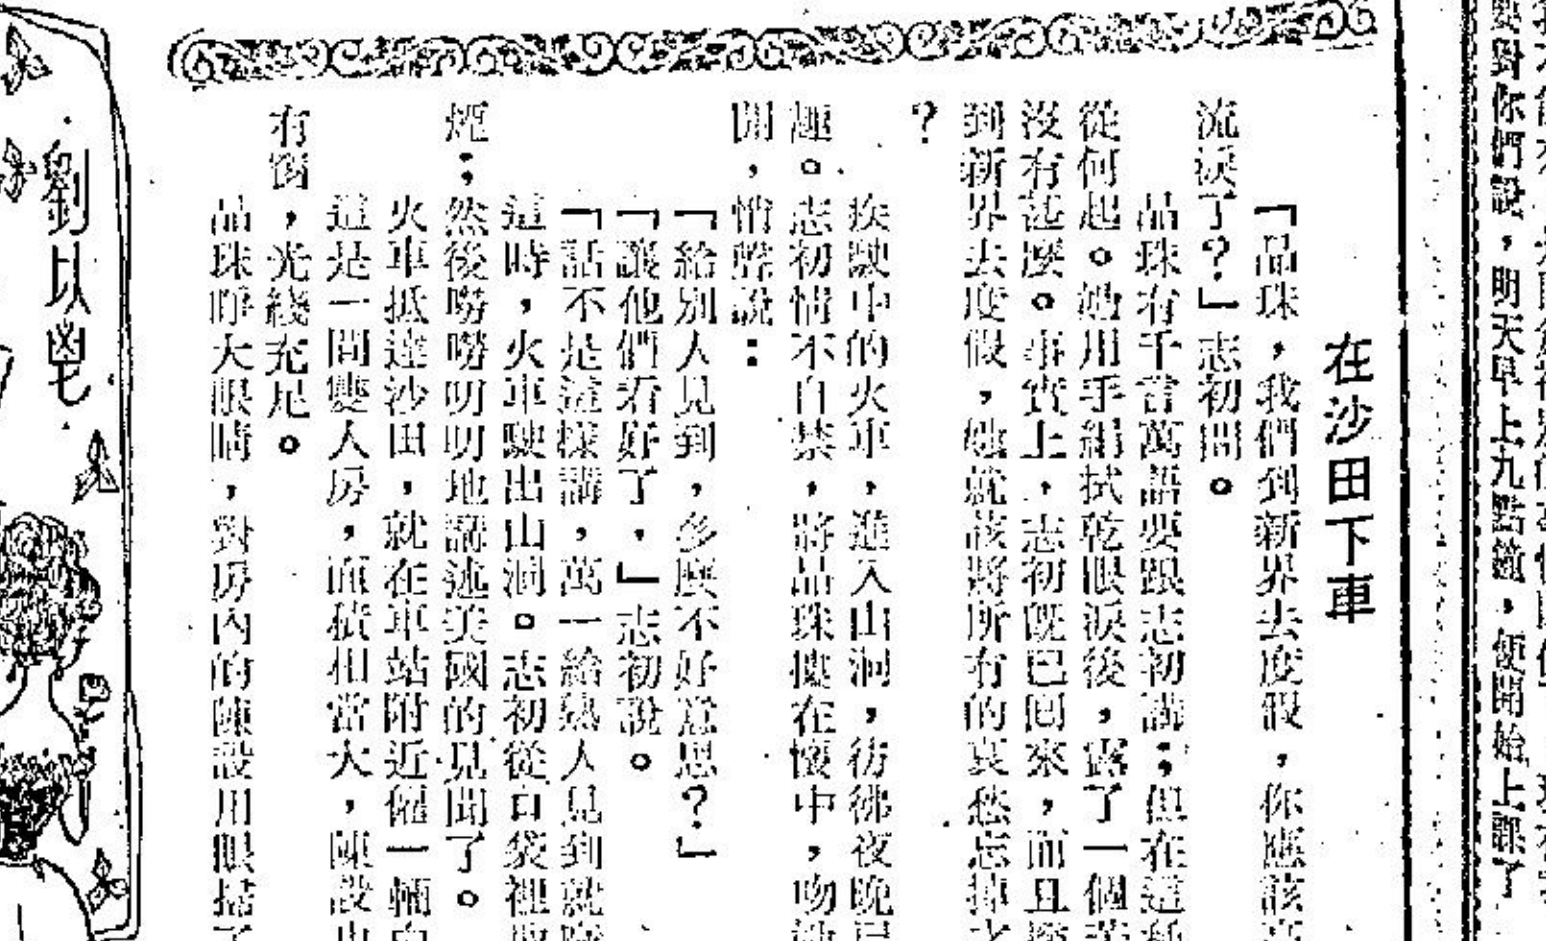 要對你們說，明天早上九點鐘，便開始上課了
在沙田下車
「品珠，我們到新界去度假，你應該高
流淚了？」志初問。
品珠有千言萬語要跟志初講；但在這種
從何起。她用手絹拭乾眼淚後，露了一個苦
沒有甚麼。事實上，志初既已回來，而且
到新界去度假，她就該將所有的哀愁忘掉才
？
疾駛中的火車，進入山洞，彷彿夜晚已
趣。志初情不自禁，將品珠摟在懷中，吻她
開，悄聲說：
「給別人見到，多麼不好意思？」
「讓他們看好了，」志初說。
「話不是這樣講，萬一給熟人見到就
這時，火車駛出山洞。志初從口袋裡取
煙；然後嘮嘮叨叨地講述美國的見聞了。
火車抵達沙田，就在車站附近僱一輛白
這是一間雙人房，面積相當大，陳設也
有窗，光綫充足。
品珠睜大眼睛，對房內的陳設用眼掃了
劉以鬯